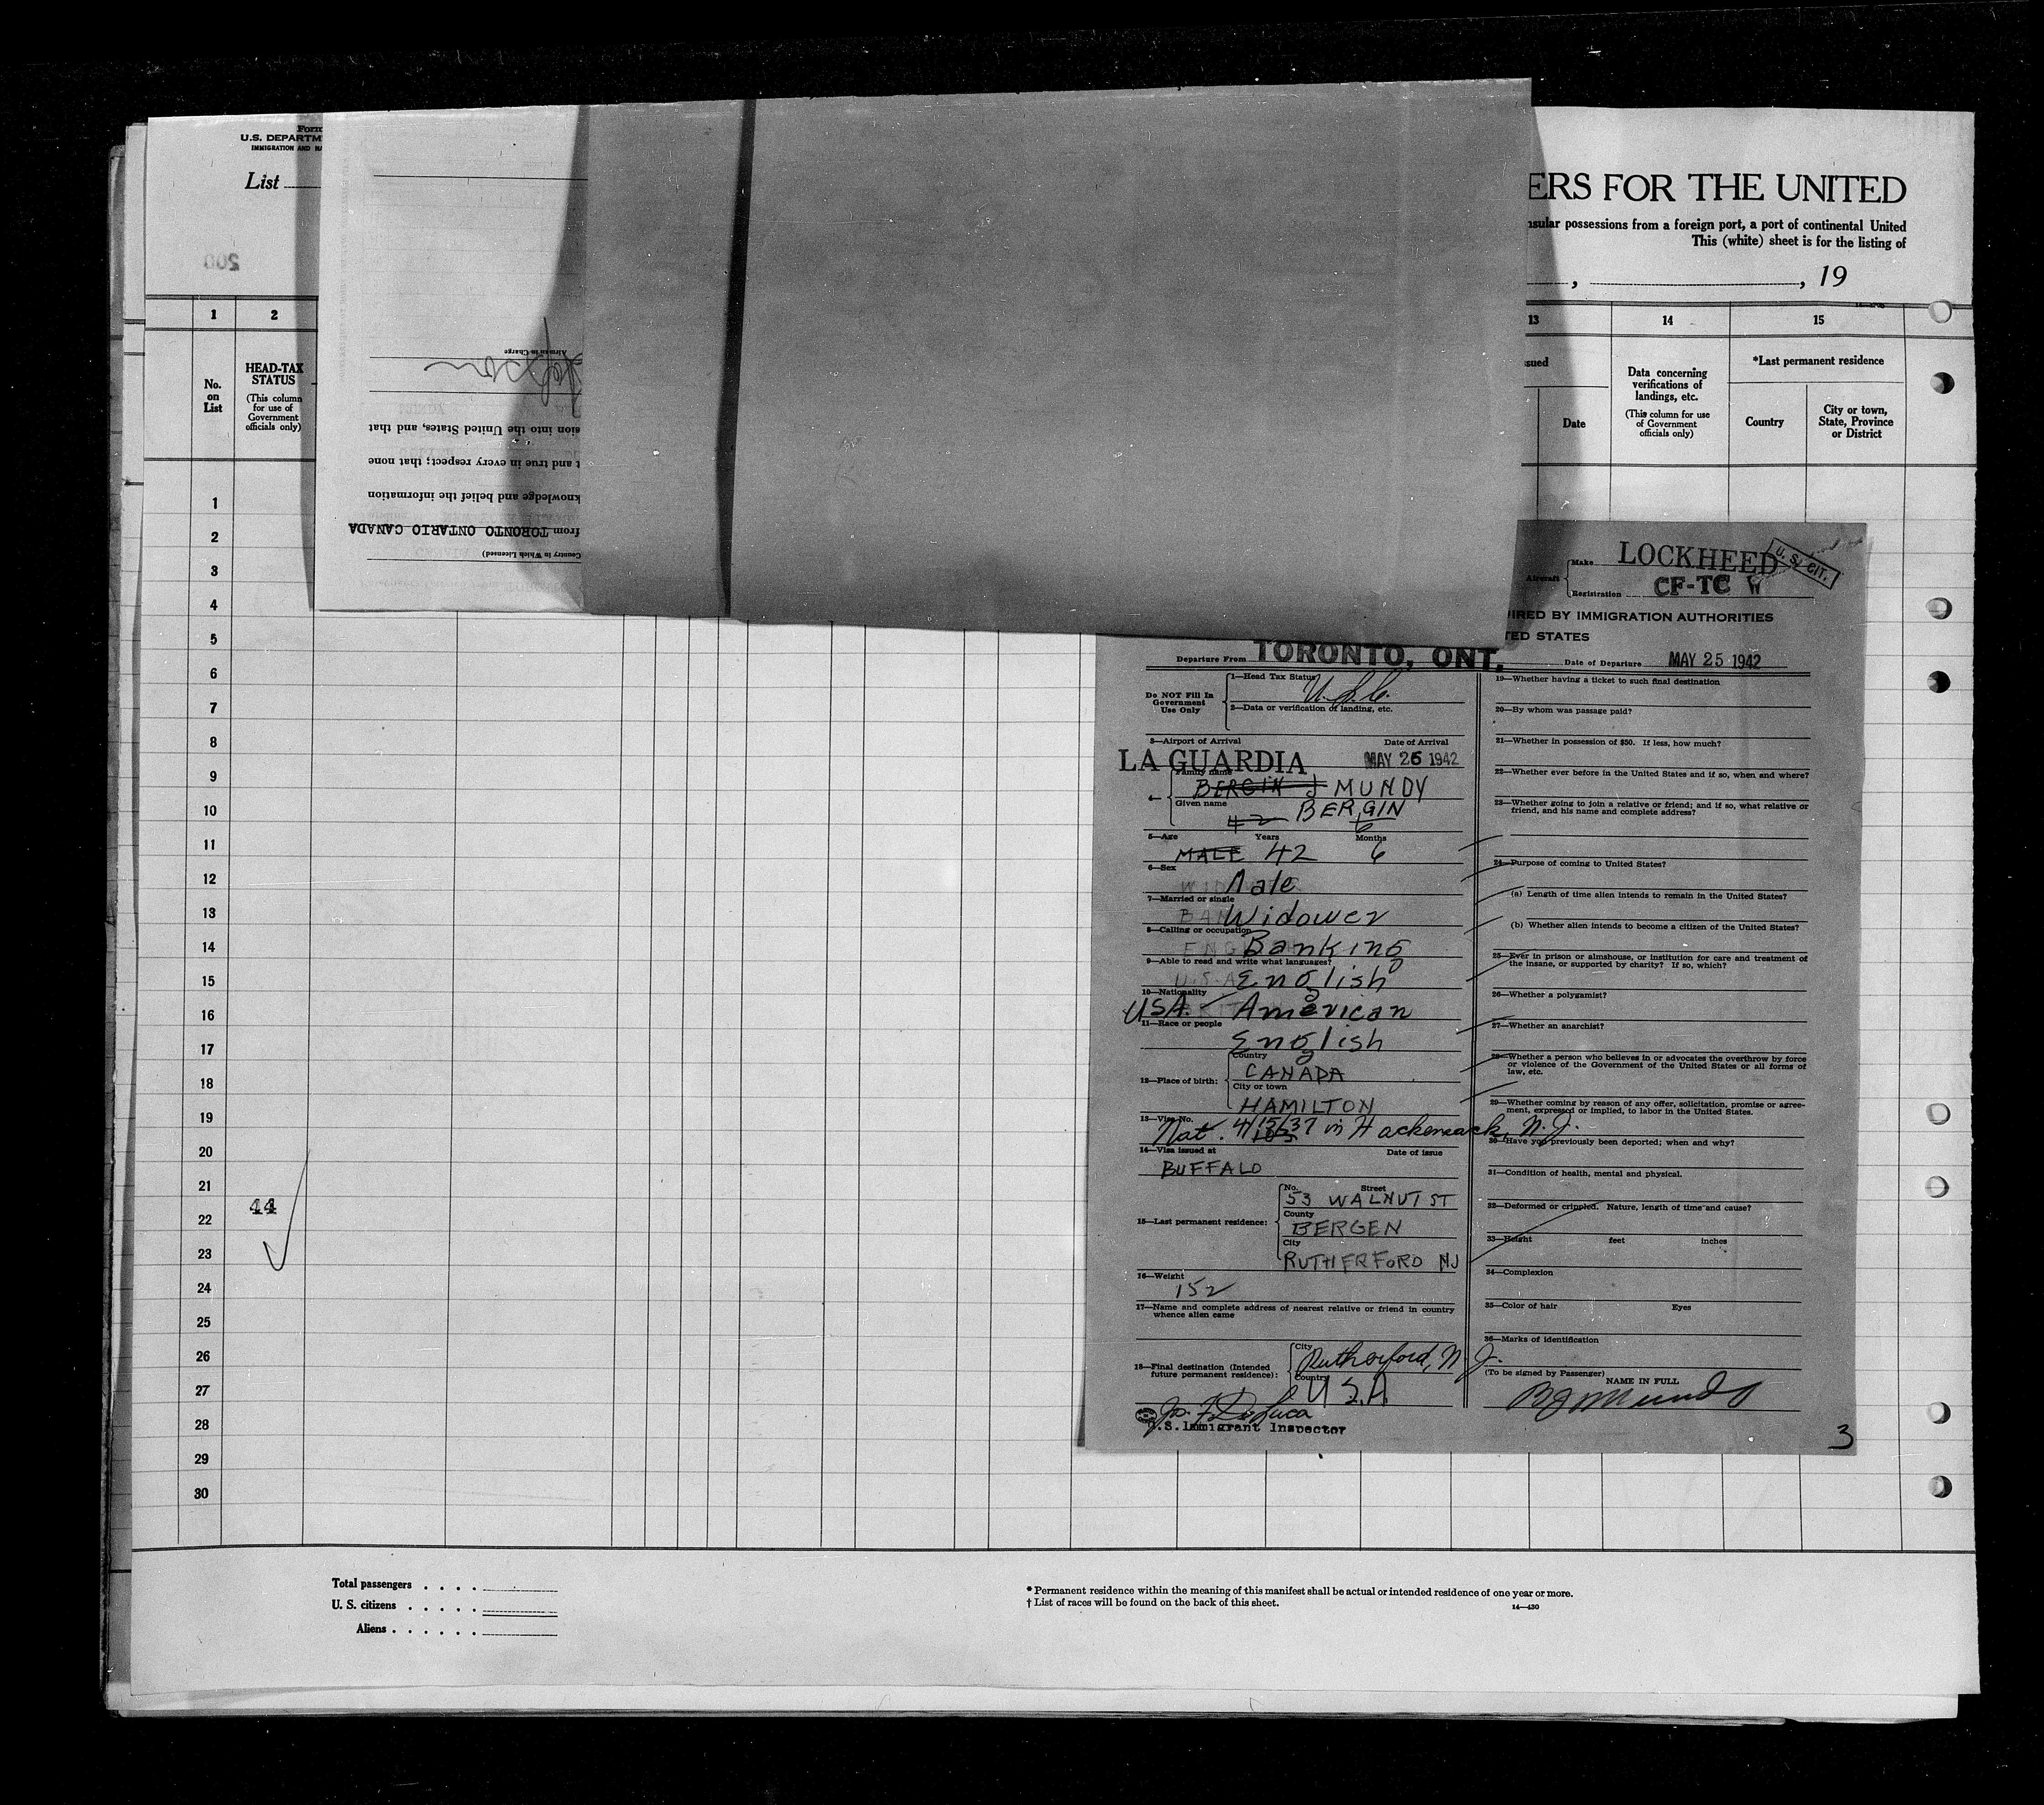 Form
U.S. DEPARTM
IMMIGRATION AND NA
List
200
ERS FOR THE UNITED
nsular possessions from a foreign port, a port of continental United
This (white) sheet is for the listing of
, , 19
1 2 13 14 15
No. on List
HEAD-TAX STATUS
(This column for use of Government officials only)
ssued
Date
Data concerning verifications of landings, etc.
(This column for use of Government officials only)
*Last permanent residence
Country
City or town, State, Province or District
Airman in Charge
sion into the United States, and that
t and true in every respect; that none
knowledge and belief the information
from TORONTO ONTARIO CANADA
Country in Which Licensed)
1
2
3
4
5
6
7
8
9
10
11
12
13
14
15
16
17
18
19
20
21
44
22
23
24
25
26
27
28
29
30
Aircraft
Make LOCKHEED
U. S. CIT.
Registration CF-TC W
IRED BY IMMIGRATION AUTHORITIES
TED STATES
Departure From TORONTO, ONT. Date of Departure MAY 25 1942
Do NOT Fill In Government Use Only
1—Head Tax Status U.S.C.
2—Data or verification of landing, etc.
3—Airport of Arrival Date of Arrival
LA GUARDIA MAY 26 1942
Family name
BERGIN J MUNDY
4—
Given name
42 BERGIN
6
5—Age Years Months
MALE 42 6
6—Sex
Male
7—Married or single
Widower
8—Calling or occupation
Banking
9—Able to read and write what languages?
English
10—Nationality
USA. American
11—Race or people
English
12—Place of birth:
Country
CANADA
City or town
HAMILTON
13—Visa No.
Nat. 4/15/37 in Hackensack, N.J.
14—Visa issued at Date of issue
BUFFALO
15—Last permanent residence:
No. Street
53 WALNUT ST
County
BERGEN
City
RUTHERFORD NJ
16—Weight
152
17—Name and complete address of nearest relative or friend in country
whence alien came
18—Final destination (Intended
future permanent residence):
City
Rutherford, N.J.
Country
U.S.A.
Jo. F. De Luca
U.S. Immigrant Inspector
19—Whether having a ticket to such final destination
20—By whom was passage paid?
21—Whether in possession of $50. If less, how much?
22—Whether ever before in the United States and if so, when and where?
23—Whether going to join a relative or friend; and if so, what relative or
friend, and his name and complete address?
24—Purpose of coming to United States?
(a) Length of time alien intends to remain in the United States?
(b) Whether alien intends to become a citizen of the United States?
25—Ever in prison or almshouse, or institution for care and treatment of
the insane, or supported by charity? If so, which?
26—Whether a polygamist?
27—Whether an anarchist?
28—Whether a person who believes in or advocates the overthrow by force
or violence of the Government of the United States or all forms of
law, etc.
29—Whether coming by reason of any offer, solicitation, promise or agree-
ment, expressed or implied, to labor in the United States.
30—Have you previously been deported; when and why?
31—Condition of health, mental and physical.
32—Deformed or crippled. Nature, length of time and cause?
33—Height feet inches
34—Complexion
35—Color of hair Eyes
36—Marks of identification
(To be signed by Passenger)
NAME IN FULL
BJ Mundy
3
Total passengers . . . .
U. S. citizens . . . . .
Aliens . . . . . .
* Permanent residence within the meaning of this manifest shall be actual or intended residence of one year or more.
† List of races will be found on the back of this sheet.
14—430